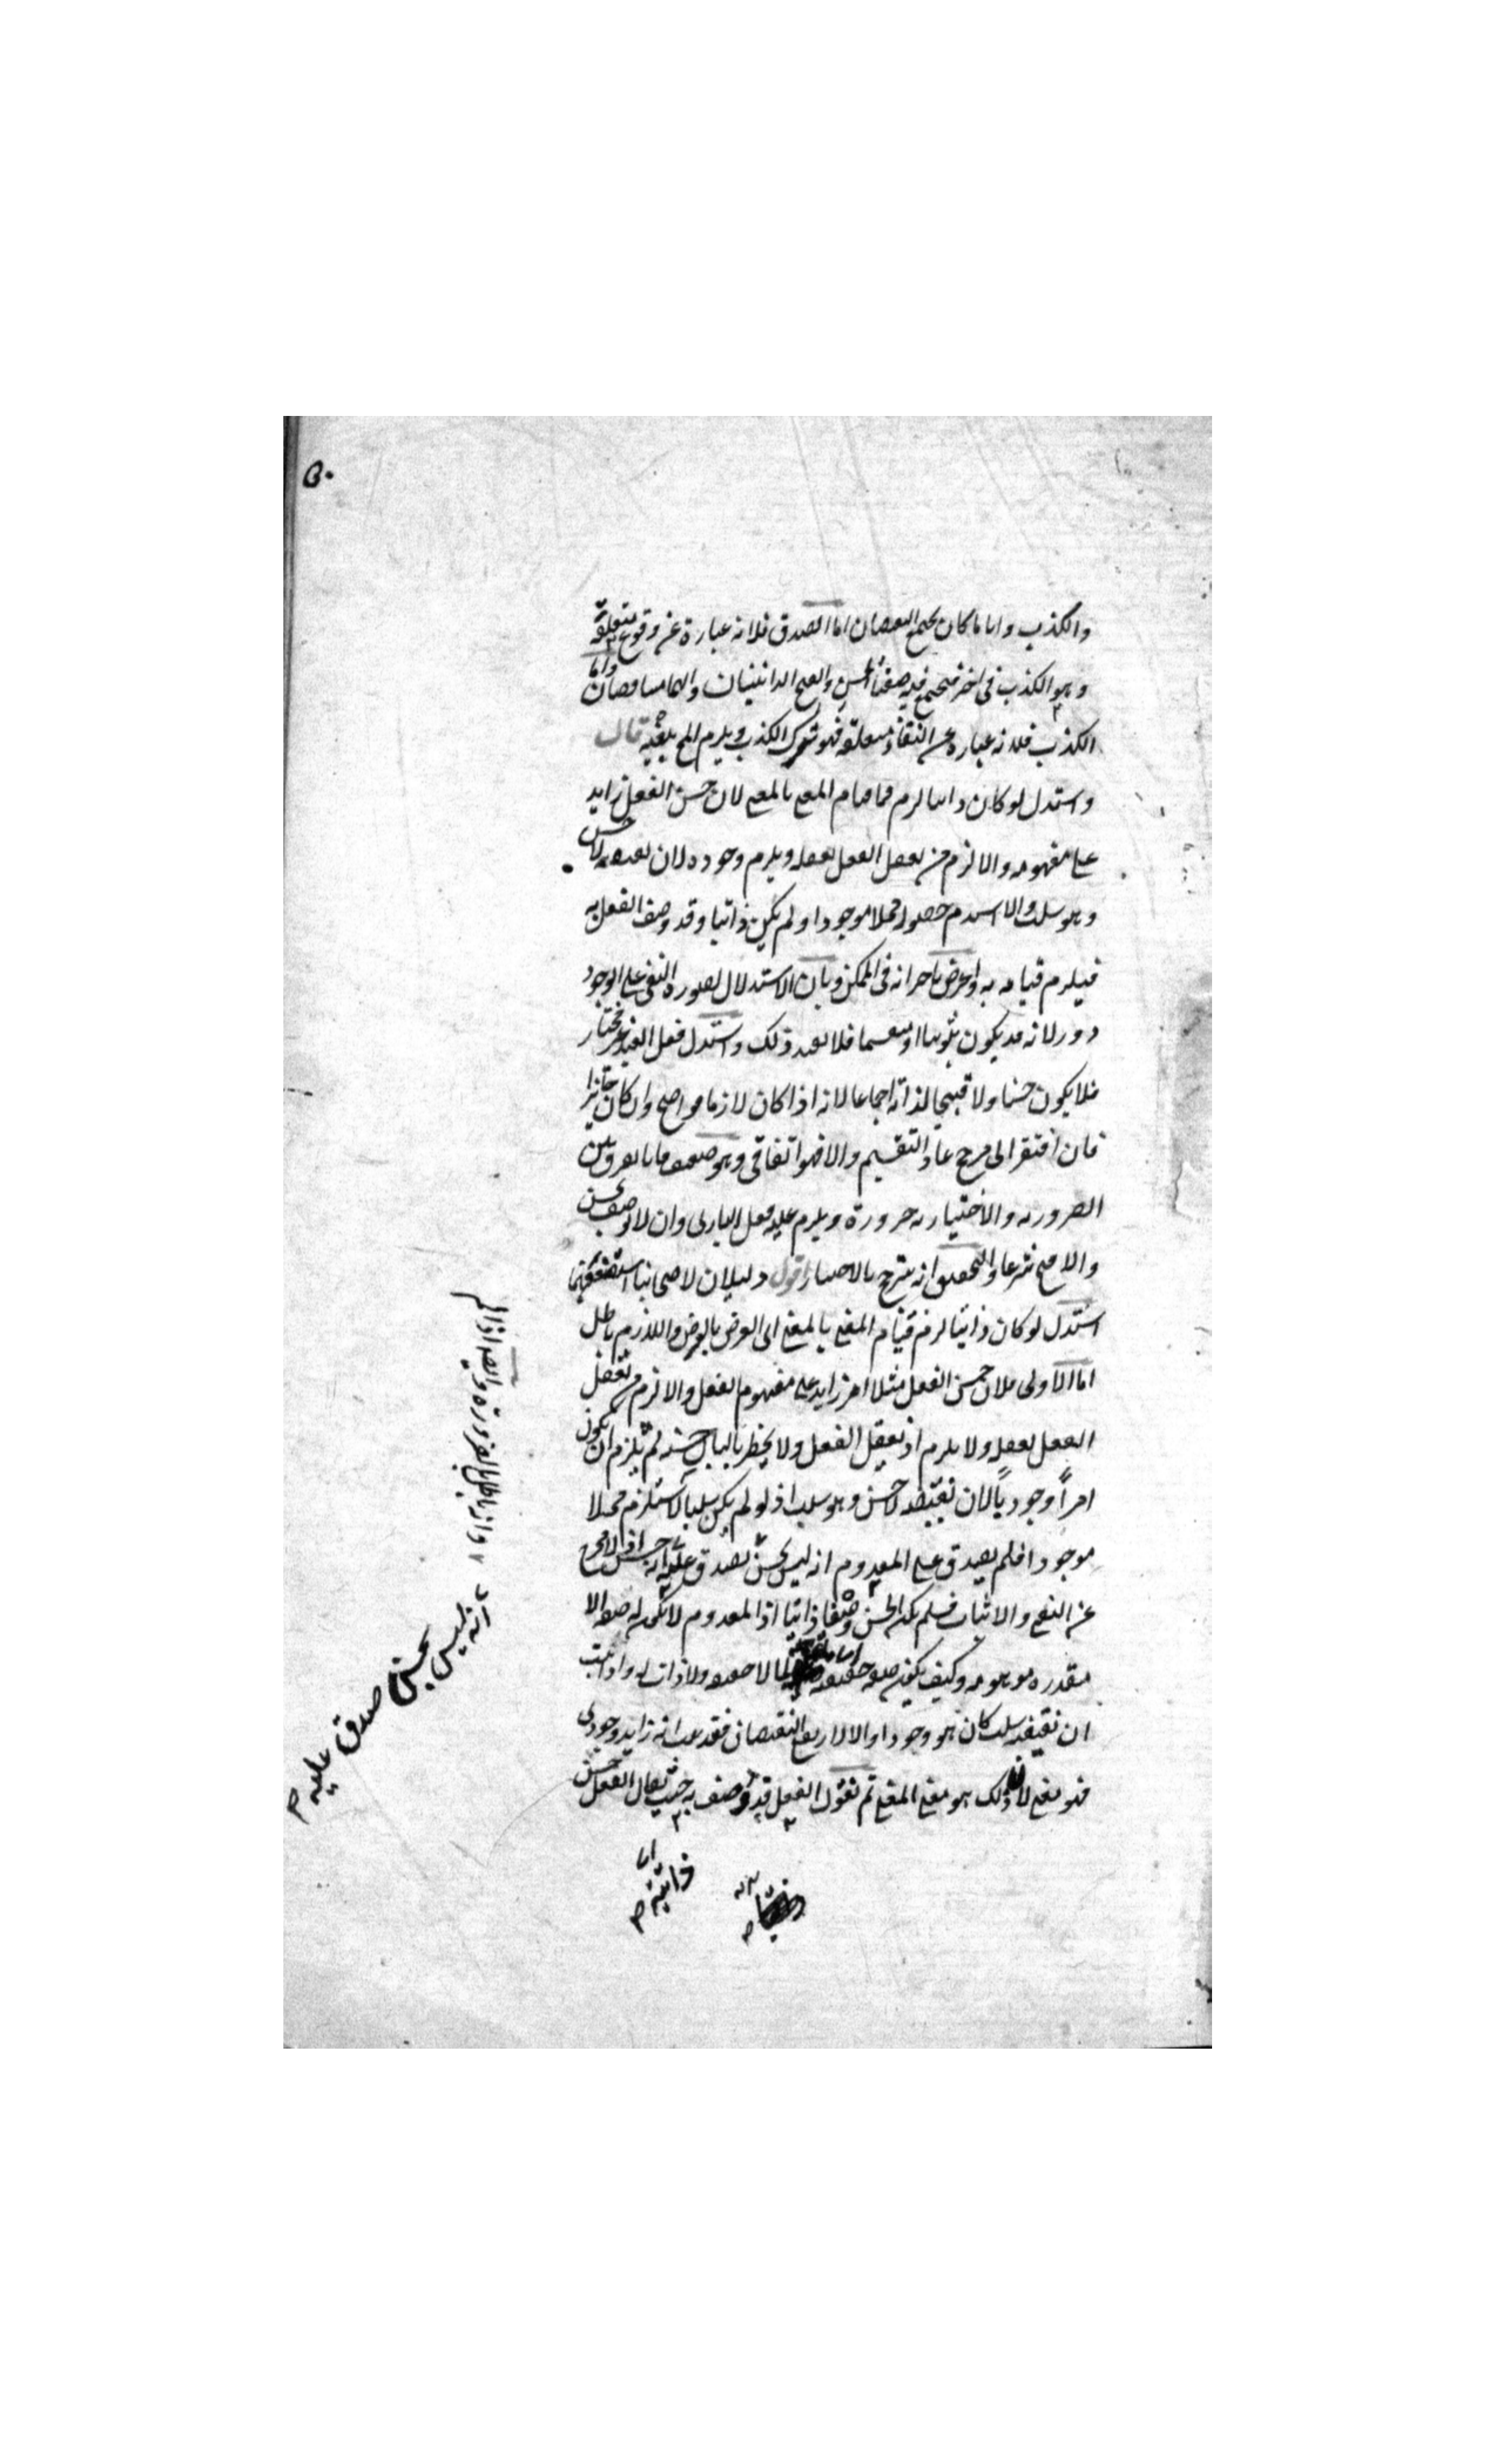 ٥٠
والكذب واياما كان يجتمع النقيضان اما الصدق فلانه عبارة عن وقوع متعلقه
وهو الكذب في اخر فيجتمع فيه صفتا الحسن والقبح الذاتيتان وانهما متناقضان واما
الكذب فلانه عبارة عن انتفاء متعلقه فهو ترك الكذب ويلزم المح بعينه قال
واستدل لو كان ذاتيا لزم قيام المعنى بالمعنى لان حسن الفعل زايد
على مفهومه والا لزم من تعقل الفعل تعقله ويلزم وجوده لان نقيضه لا حسن
وهو سلب والا استلزم حصوله محلا موجودا ولم يكن ذاتيا وقد وصف الفعل به
فيلزم قيامه به واعترض باجرائه في الممكن وبان الاستدلال بصورة النفي على الوجود
دور لانه قد يكون ثبوتيا او منقسما فلا يفيد ذلك واستدل فعل العبد غير مختار
فلا يكون حسنا ولا قبيحا لذاته اجماعا لانه اذا كان لازما فواضح وان كان جائزا
فان افتقر الى مرجح عاد التقسيم والا فهو اتفاقي وهو ضعيف فانا نفرق بين
الضرورية والاختيارية ضرورة ويلزم عليه فعل الباري وان لا يوصف بحسن
ولا قبح شرعا والتحقيق انه يترجح بالاختيار اقول دليلان لاصحابنا استضعفهما
استدل لو كان ذاتيا لزم قيام المعنى بالمعنى اى العرض بالعرض واللازم باطل
اما الاولى فلان حسن الفعل مثلا امر زايد على مفهوم الفعل والا لزم من تعقل
الفعل تعقله ولا يلزم اذ يعقل الفعل ولا يخطر بالبال حسنه ثم يلزم ان يكون
امرا وجوديا لان نقيضه لا حسن وهو سلب اذ لو لم يكن سلبا لاستلزم محلا
موجودا فلم يصدق على المعدوم انه ليس بحسن
عن النفي والاثبات فلم يكن الحسن وصفا ذاتيا اذ المعدوم لا يكون له صفة الا
مقدرة موهومة وكيف يكون صفة حقيقية لما لا حقيقة ولا ذات له واذا ثبت
ان نقيضه سلب كان هو وجودا والا لارتفع النقيضان فقد ثبت انه زايد وجودي
فهو معنى لان ذلك هو معنى المعنى ثم نقول الفعل قد وصف به حيث يقال الفعل حسن
انه ليس بحسن صدق عليه
وانه باطل بالضرورة وايضا
اما
ذاتية